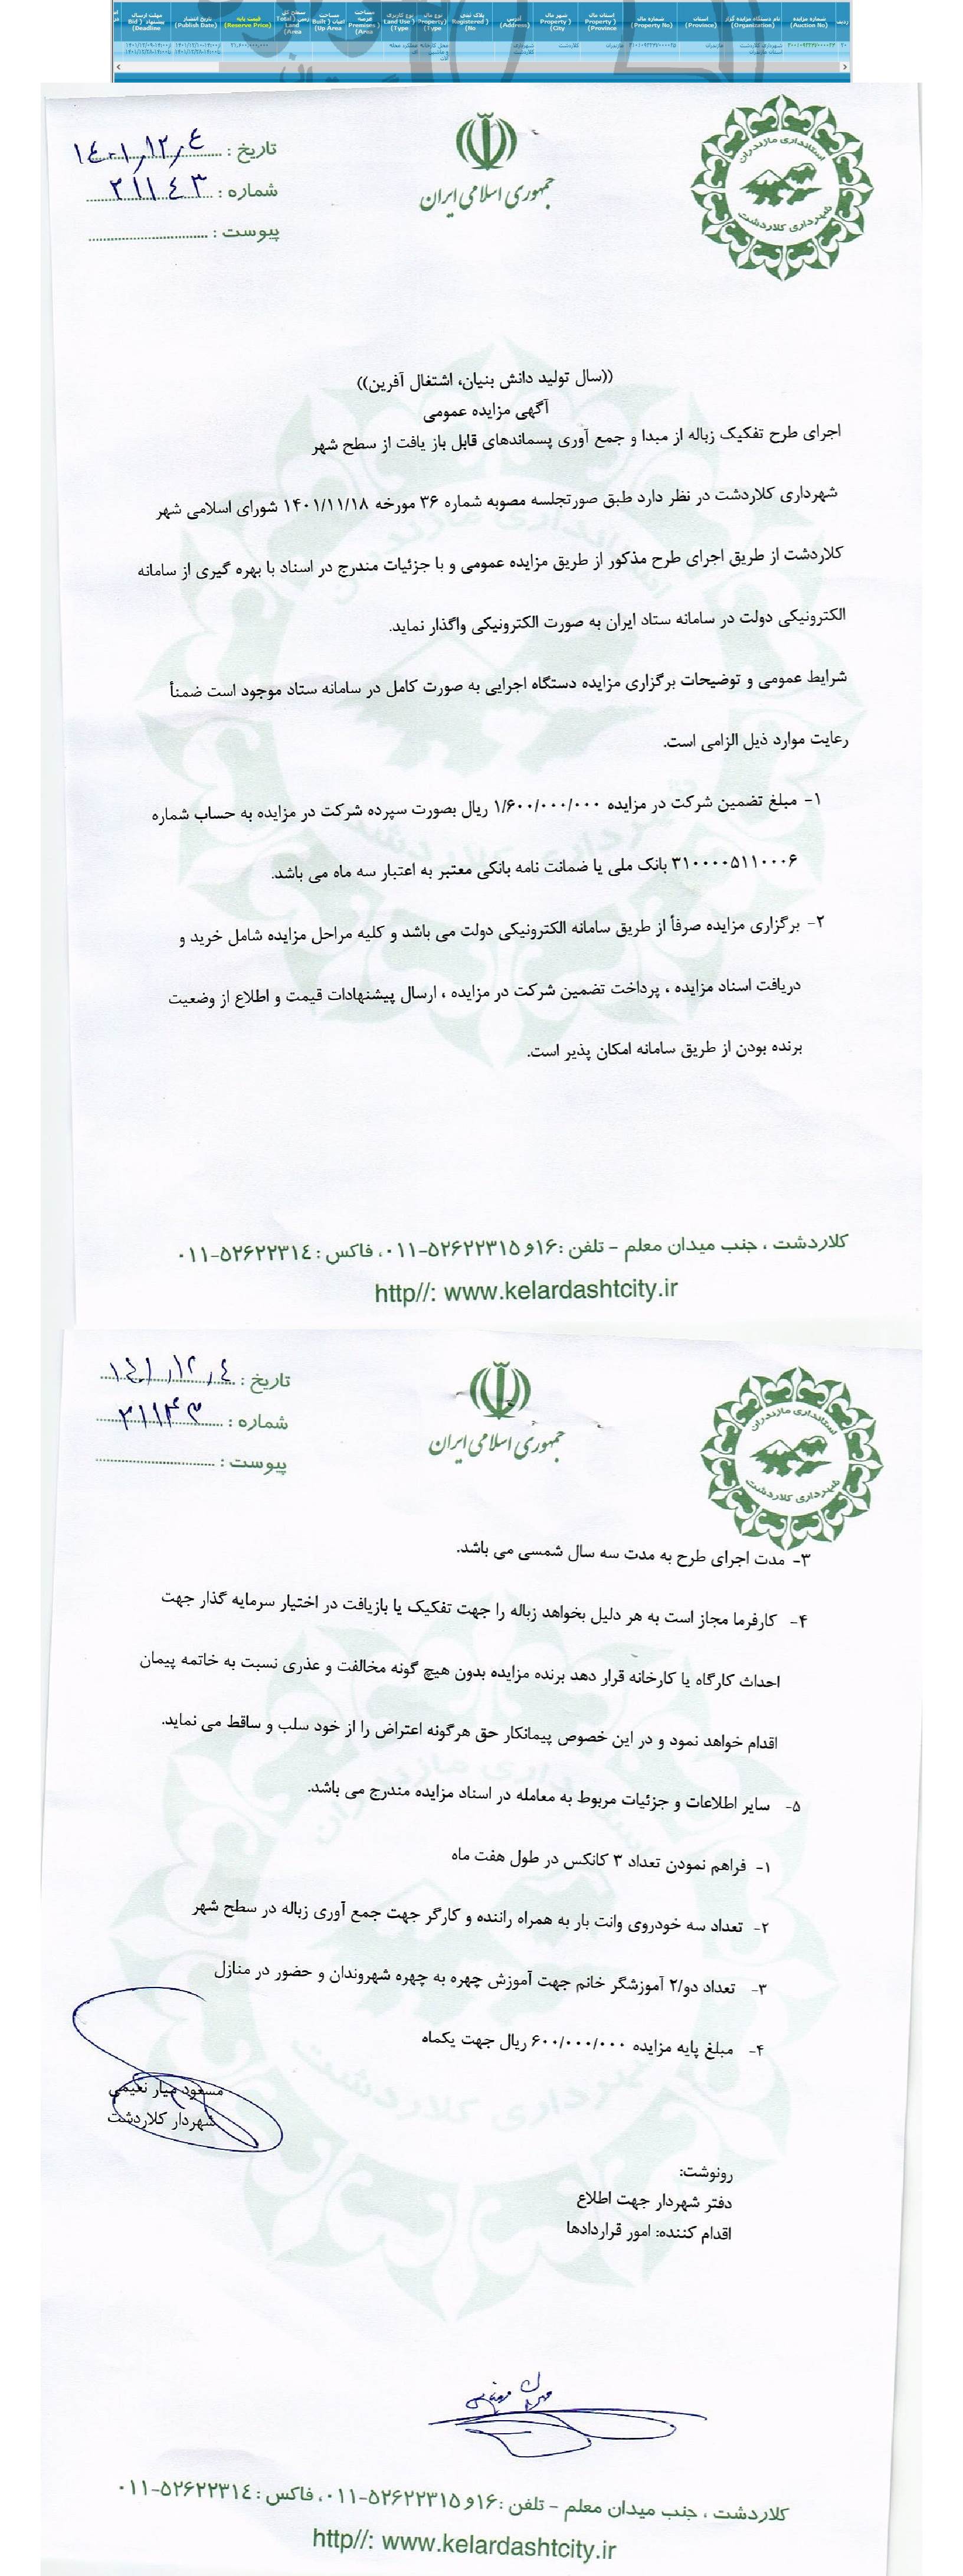 ردیف
شماره مزایده
(Auction No)
نام دستگاه مزایده گزار
(Organization)
استان
(Province)
شماره مال
(Property No)
استان مال
(Property Province)
شهر مال
(Property City)
آدرس
(Address)
پلاک ثبتی
(Registered No)
نوع مال
(Property Type)
نوع کاربری
(Land Use Type)
مساحت عرصه
(Premises Area)
مساحت اعیان
(Built Up Area)
قیمت پایه
(Reserve Price)
تاریخ انتشار
(Publish Date)
مهلت ارسال پیشنهاد
(Bid Deadline)
استانداری مازندران
شهرداری کلاردشت
جمهوری اسلامی ایران
تاریخ : ۱۴۰۱٫۱۲٫۴
شماره : ۲۱۱۴۳
پیوست :
((سال تولید دانش بنیان، اشتغال آفرین))
آگهی مزایده عمومی
اجرای طرح تفکیک زباله از مبدا و جمع آوری پسماندهای قابل باز یافت از سطح شهر
شهرداری کلاردشت در نظر دارد طبق صورتجلسه مصوبه شماره ۳۶ مورخه ۱۴۰۱/۱۱/۱۸ شورای اسلامی شهر
کلاردشت از طریق اجرای طرح مذکور از طریق مزایده عمومی و با جزئیات مندرج در اسناد با بهره گیری از سامانه
الکترونیکی دولت در سامانه ستاد ایران به صورت الکترونیکی واگذار نماید.
شرایط عمومی و توضیحات برگزاری مزایده دستگاه اجرایی به صورت کامل در سامانه ستاد موجود است ضمنأ
رعایت موارد ذیل الزامی است.
۱- مبلغ تضمین شرکت در مزایده ۱/۶۰۰/۰۰۰/۰۰۰ ریال بصورت سپرده شرکت در مزایده به حساب شماره
۳۱۰۰۰۰۵۱۱۰۰۰۶ بانک ملی یا ضمانت نامه بانکی معتبر به اعتبار سه ماه می باشد.
۲- برگزاری مزایده صرفأ از طریق سامانه الکترونیکی دولت می باشد و کلیه مراحل مزایده شامل خرید و
دریافت اسناد مزایده ، پرداخت تضمین شرکت در مزایده ، ارسال پیشنهادات قیمت و اطلاع از وضعیت
برنده بودن از طریق سامانه امکان پذیر است.
کلاردشت ، جنب میدان معلم - تلفن :۱۶و ۵۲۶۲۲۳۱۵-۰۱۱، فاکس : ۵۲۶۲۲۳۱۴-۰۱۱
http//: www.kelardashtcity.ir
استانداری مازندران
شهرداری کلاردشت
جمهوری اسلامی ایران
تاریخ : ۱۴۰۱٫۱۲٫۴
شماره : ۲۱۱۴۳
پیوست :
۳- مدت اجرای طرح به مدت سه سال شمسی می باشد.
۴- کارفرما مجاز است به هر دلیل بخواهد زباله را جهت تفکیک یا بازیافت در اختیار سرمایه گذار جهت
احداث کارگاه یا کارخانه قرار دهد برنده مزایده بدون هیچ گونه مخالفت و عذری نسبت به خاتمه پیمان
اقدام خواهد نمود و در این خصوص پیمانکار حق هرگونه اعتراض را از خود سلب و ساقط می نماید.
۵- سایر اطلاعات و جزئیات مربوط به معامله در اسناد مزایده مندرج می باشد.
۱- فراهم نمودن تعداد ۳ کانکس در طول هفت ماه
۲- تعداد سه خودروی وانت بار به همراه راننده و کارگر جهت جمع آوری زباله در سطح شهر
۳- تعداد دو/۲ آموزشگر خانم جهت آموزش چهره به چهره شهروندان و حضور در منازل
۴- مبلغ پایه مزایده ۶۰۰/۰۰۰/۰۰۰ ریال جهت یکماه
مسعود میار نعیمی
شهردار کلاردشت
رونوشت:
دفتر شهردار جهت اطلاع
اقدام کننده: امور قراردادها
کلاردشت ، جنب میدان معلم - تلفن :۱۶و ۵۲۶۲۲۳۱۵-۰۱۱، فاکس : ۵۲۶۲۲۳۱۴-۰۱۱
http//: www.kelardashtcity.ir